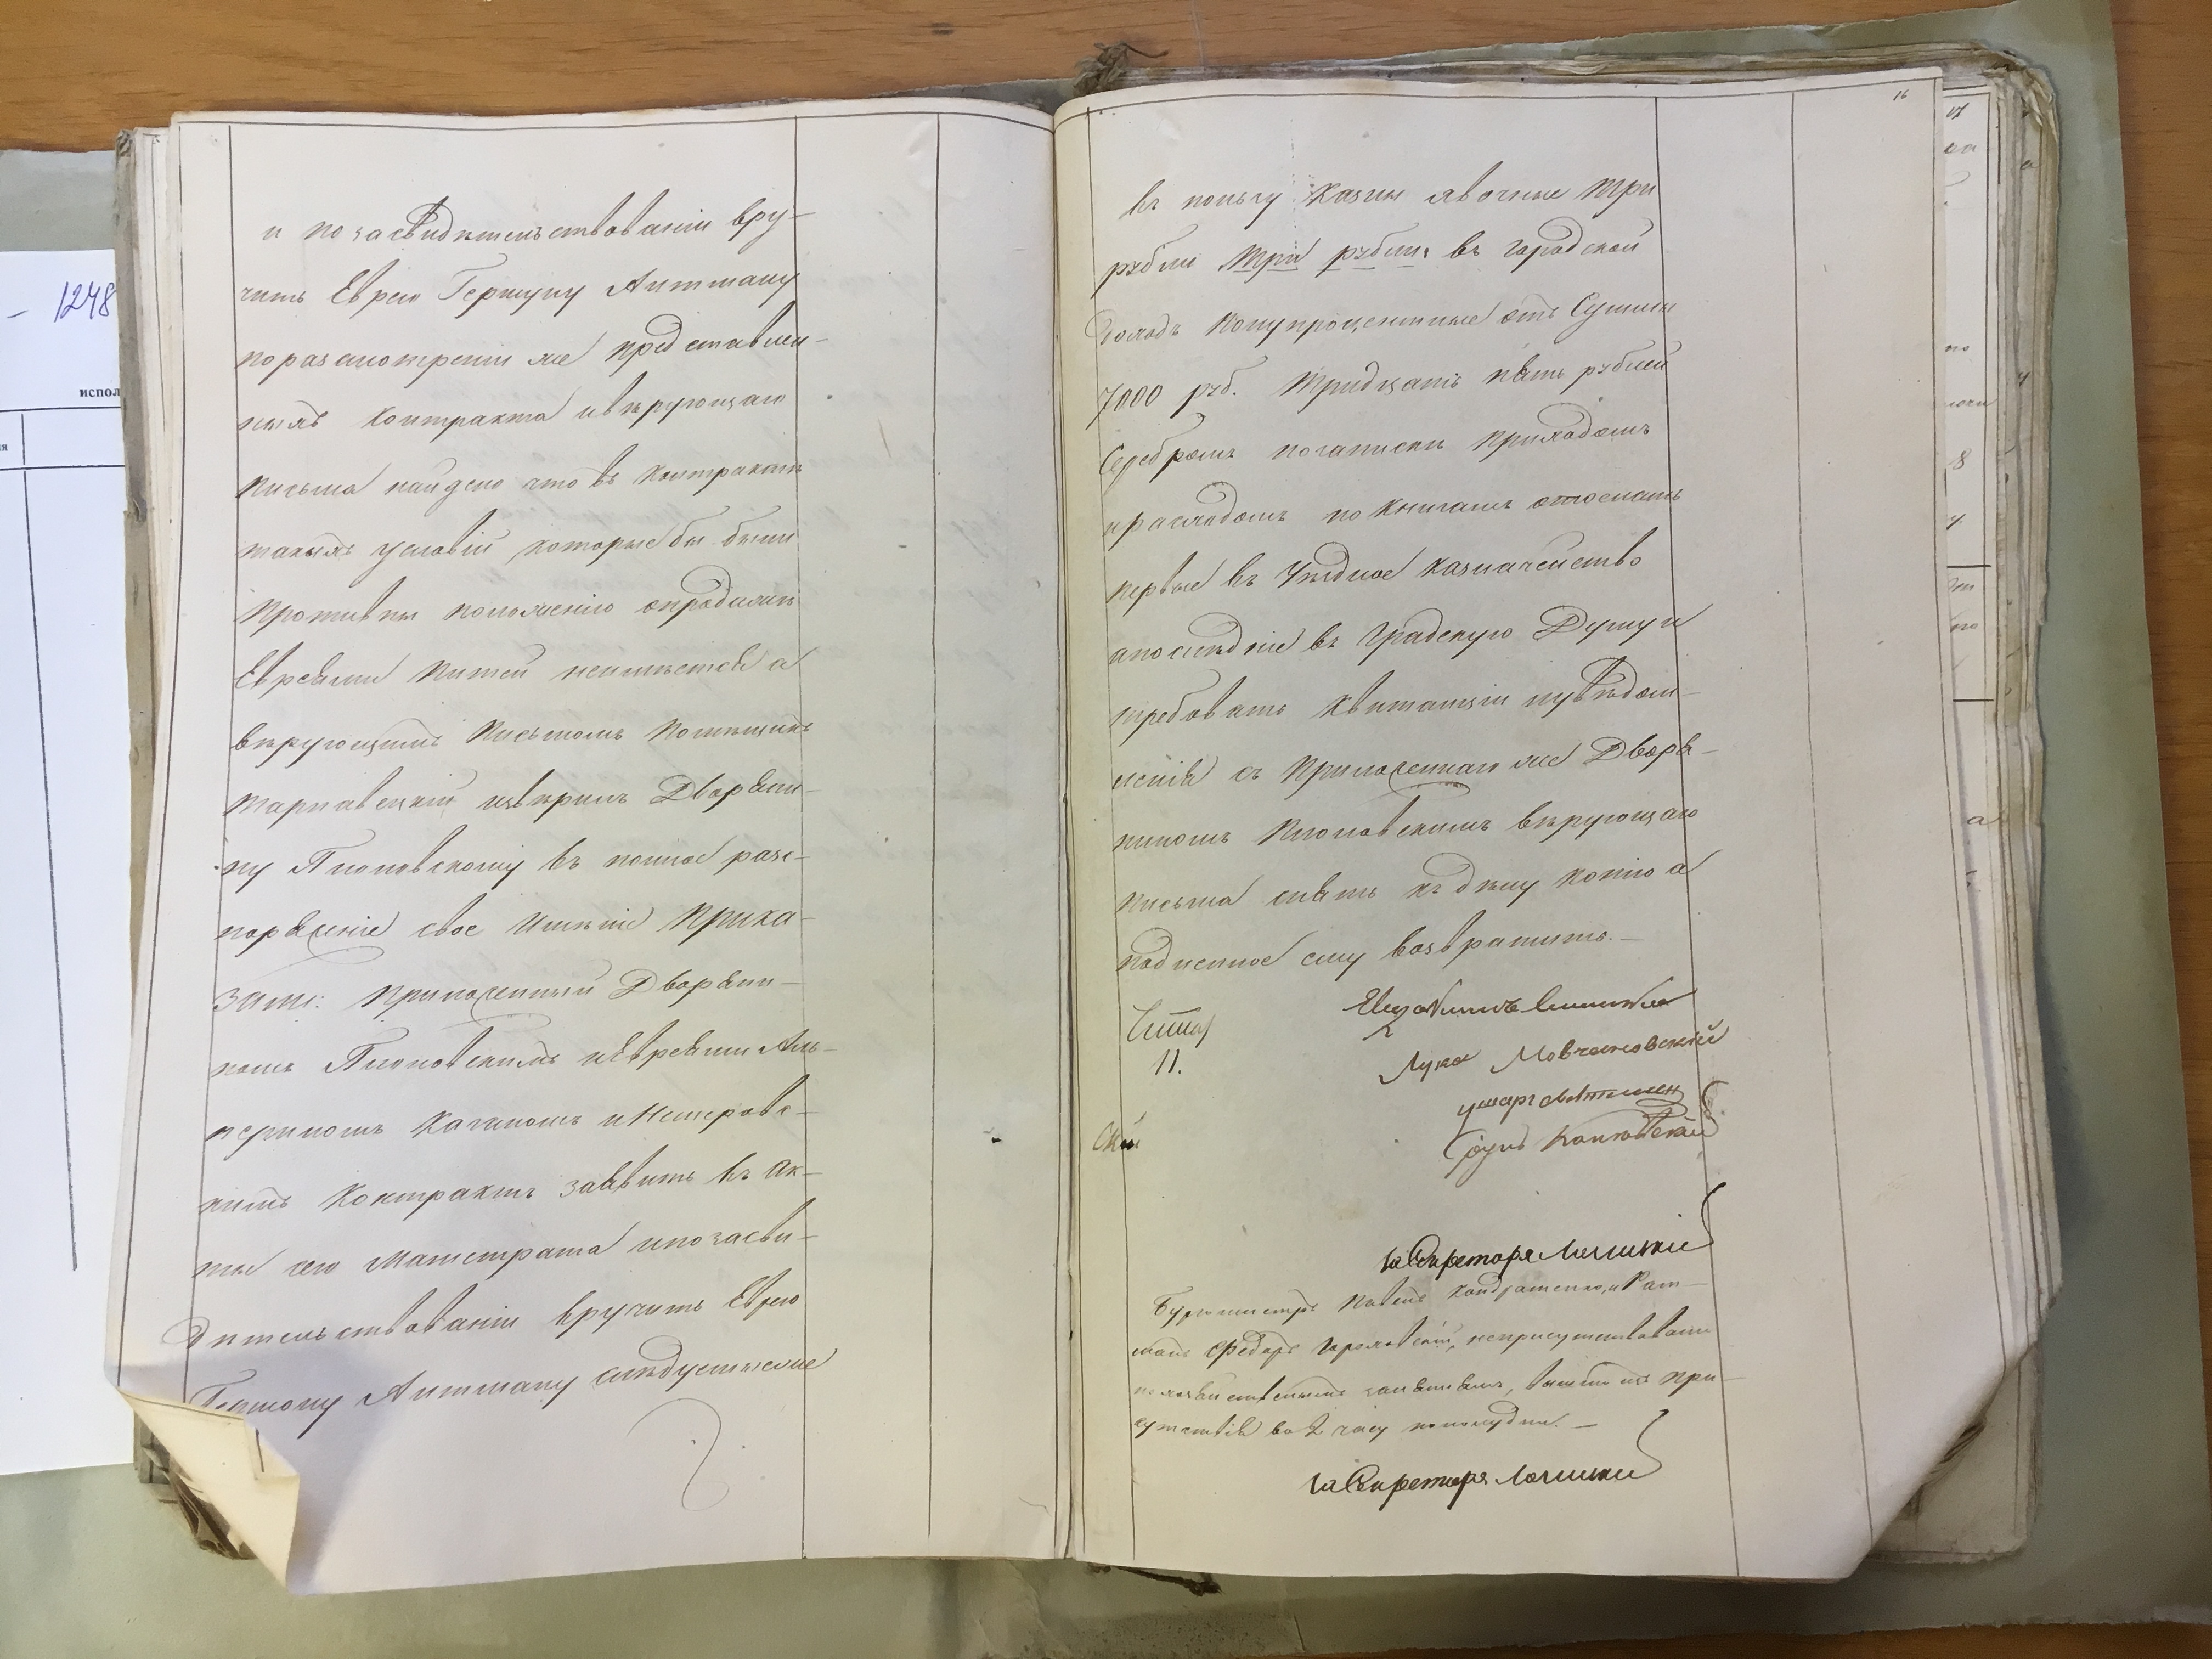 1248
испол
и по засвидѣтельствованіи вру-
чить Еврею Гершуну Литману
по разсмотреніи же представлен-
ныхъ контракта и вѣрующаго
письма найдено что въ контрактѣ
такихъ условій которые бы были
противны положенію о продажѣ
Евреями питей неимѣется а
вѣрующимъ письмомъ помѣщикъ
Тарнавскій ввѣрилъ Дворяни-
ну Пионовскому въ полное расс-
поряженіе свое имѣніе Прика-
зали: приложенный Дворяни-
номъ Пионовскимъ и Евреями Аль-
периномъ Каганомъ и Немеровс-
кимъ контрактъ заявить въ ак-
ты сего Магистрата и по засви-
дѣтельствованіи вручить Еврею
Гершону Литману слѣдуемыеже
16
въ пользу казны явочные три
рубли три рубли, въ городской
доходъ полупроцентные отъ Суммы
7000 руб. тридцать пять рублей
Серебромъ по запискѣ приходомъ
и расходомъ по книгамъ отослать
первые въ Уѣздное казначейство
а послѣдніе въ Градскую Думу и
требовать квитанціи и увѣдом-
ленія съ приложеннаго же Дворя-
ниномъ Пионовскимъ вѣрующаго
письма снять къ дѣлу копію а
подленное ему возвратить.
11.
Лука Мовчановскій
За Секретаря
Бурмистръ Павелъ Кондратенко, и Рат-
манъ Федоръ неприсутствовали
вышли изъ при-
сутствія во 2 часу пополудни.
За Секретаря